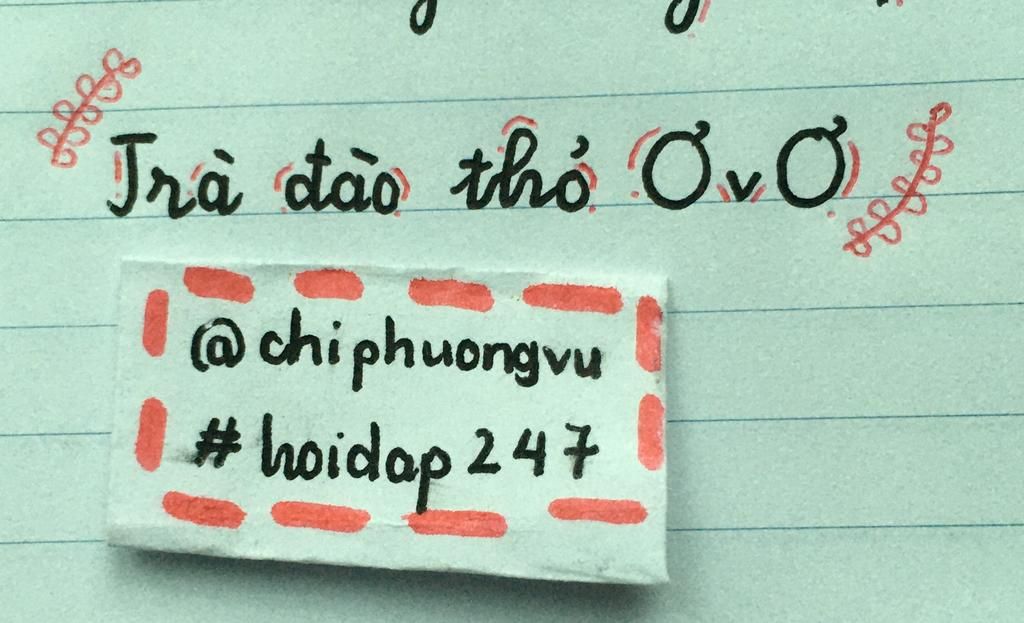 Trà đào thỏ ƠvƠ
@chiphuongvu
#hoidap247